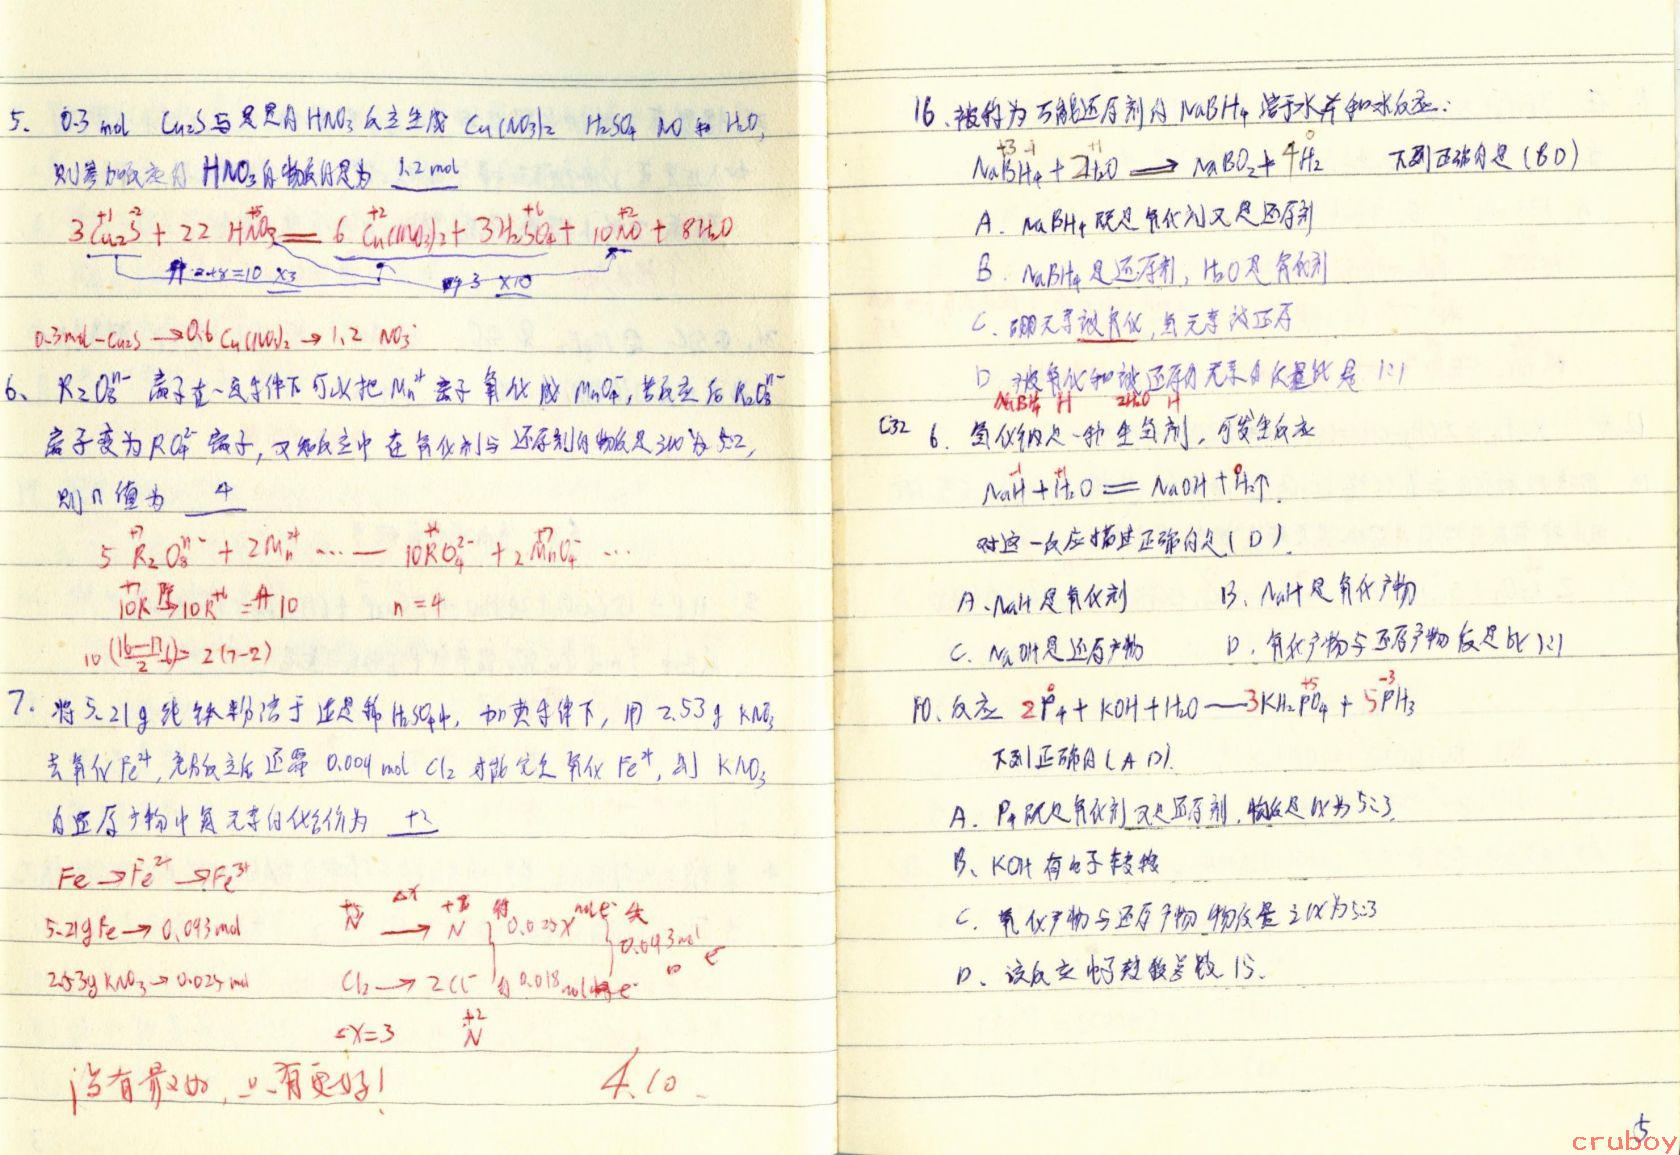 5. 0.3 mol Cu₂S与足量的HNO₃反应生成 Cu(NO₃)₂ H₂SO₄ NO 和 H₂O,
则参加反应的 HNO₃的物质的量为 1.2 mol
3Cu₂S + 22 HNO₃ = 6 Cu(NO₃)₂ + 3H₂SO₄ + 10NO + 8H₂O
升2+8=10 ×3 降3 ×10
0.3mol-Cu₂S →0.6 Cu(NO₃)₂ → 1.2 NO₃⁻
6、 R₂O₈ⁿ⁻ 离子在一定条件下可以把 Mn²⁺ 离子氧化成 MnO₄⁻, 若反应后 R₂O₈ⁿ⁻
离子变为 RO₄²⁻ 离子, 又知反应中 在氧化剂与还原剂的物质的量 为 5:2,
则 n 值为 4
+7 +6 +7
5 R₂O₈ⁿ⁻ + 2Mn²⁺ ... — 10RO₄²⁻ + 2MnO₄⁻ ...
10R 降→ 10R⁺⁶ = 升10 n = 4
10(16-n/2-6) = 2(7-2)
7. 将 5.21g 纯铁粉溶于过量稀H₂SO₄中, 加热条件下, 用 2.53g KNO₃
去氧化Fe²⁺, 充分反应后还需 0.009 mol Cl₂ 才能完全氧化 Fe²⁺, 则 KNO₃
的还原产物中氮元素的化合价为 +2
Fe →Fe²⁺ →Fe³⁺
5.21gFe → 0.093mol
+5 N △x → N 得 0.025x mol e⁻ 失 0.093mol e⁻
2.53g KNO₃ → 0.025 mol
Cl₂ → 2Cl⁻ 得 0.018 mol e⁻
△x=3 +2 N
没有最好, 只有更好!
4.10.
16. 被称为万能还原剂的 NaBH₄ 溶于水并和水反应:
+3 -1 +1 0
NaBH₄ + 2H₂O = NaBO₂ + 4H₂ 下列正确的是 (BD)
A. NaBH₄既是氧化剂又是还原剂
B. NaBH₄是还原剂, H₂O是氧化剂
C. 硼元素被氧化, 氢元素被还原
D 被氧化和被还原的元素的质量比是 1:1
NaBH₄ H 2H₂O H
C32 6. 氢化钠是一种生氢剂, 可发生反应
-1 +1 0
NaH + H₂O = NaOH + H₂↑.
对这一反应描述正确的是 (D).
A. NaH 是氧化剂 B、NaH 是氧化产物
C. NaOH是还原产物 D. 氧化产物与还原产物质量比 1:1
10. 反应 2P₄ + KOH + H₂O — 3KH₂PO₄ + 5PH₃
下列正确的 (AD).
A. P₄既是氧化剂又是还原剂, 物质量比为 5:3
B、KOH 有电子转移
C. 氧化产物与还原产物物质量之比为 5:3
D、该反应电子转移总数 15.
5
cruboy